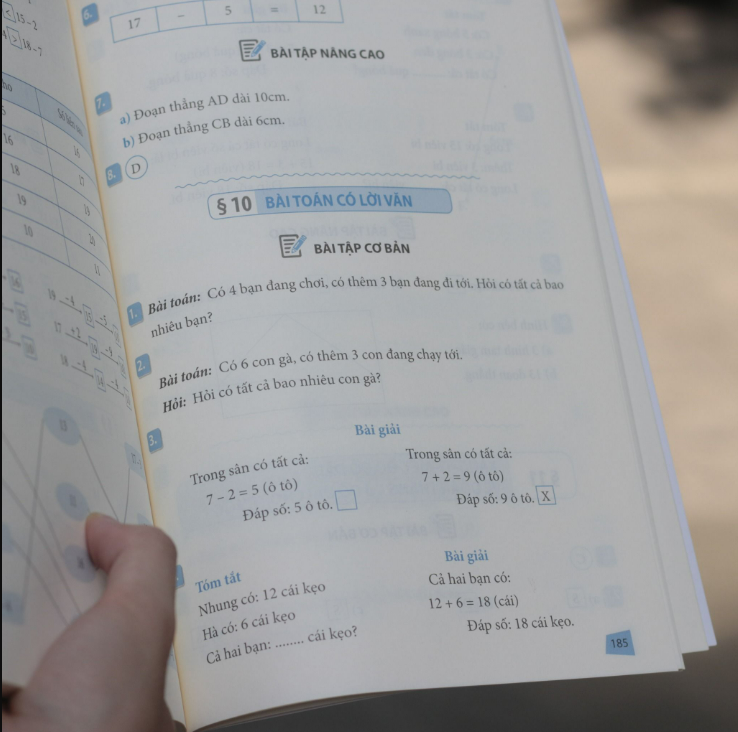 < 15 - 2
> 18 - 7
16
18
19
16
17
19
20
6.
17 - 5 = 12
BÀI TẬP NÂNG CAO
7.
a) Đoạn thẳng AD dài 10cm.
b) Đoạn thẳng CB dài 6cm.
8. D
§ 10 BÀI TOÁN CÓ LỜI VĂN
BÀI TẬP CƠ BẢN
1. Bài toán: Có 4 bạn đang chơi, có thêm 3 bạn đang đi tới. Hỏi có tất cả bao
nhiêu bạn?
2. Bài toán: Có 6 con gà, có thêm 3 con đang chạy tới.
Hỏi: Hỏi có tất cả bao nhiêu con gà?
3.
Bài giải
Trong sân có tất cả:
7 - 2 = 5 (ô tô)
Đáp số: 5 ô tô.
Trong sân có tất cả:
7 + 2 = 9 (ô tô)
Đáp số: 9 ô tô. X
Tóm tắt
Nhung có: 12 cái kẹo
Hà có: 6 cái kẹo
Cả hai bạn: ........ cái kẹo?
Bài giải
Cả hai bạn có:
12 + 6 = 18 (cái)
Đáp số: 18 cái kẹo.
185